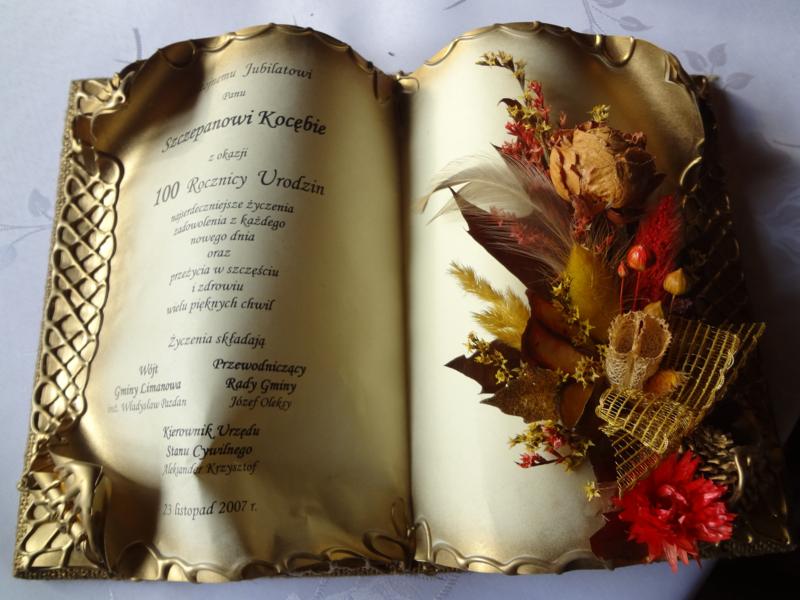 Jubilatowi
Panu
Szczepanowi Kocębie
z okazji
100 Rocznicy Urodzin
najserdeczniejsze życzenia
zadowolenia z każdego
nowego dnia
oraz
przeżycia w szczęściu
i zdrowiu
wielu pięknych chwil
Życzenia składają
Wójt
Gminy Limanowa
inż. Władysław Pazdan
Przewodniczący
Rady Gminy
Józef Oleksy
Kierownik Urzędu
Stanu Cywilnego
Aleksander Krzysztof
23 listopad 2007 r.